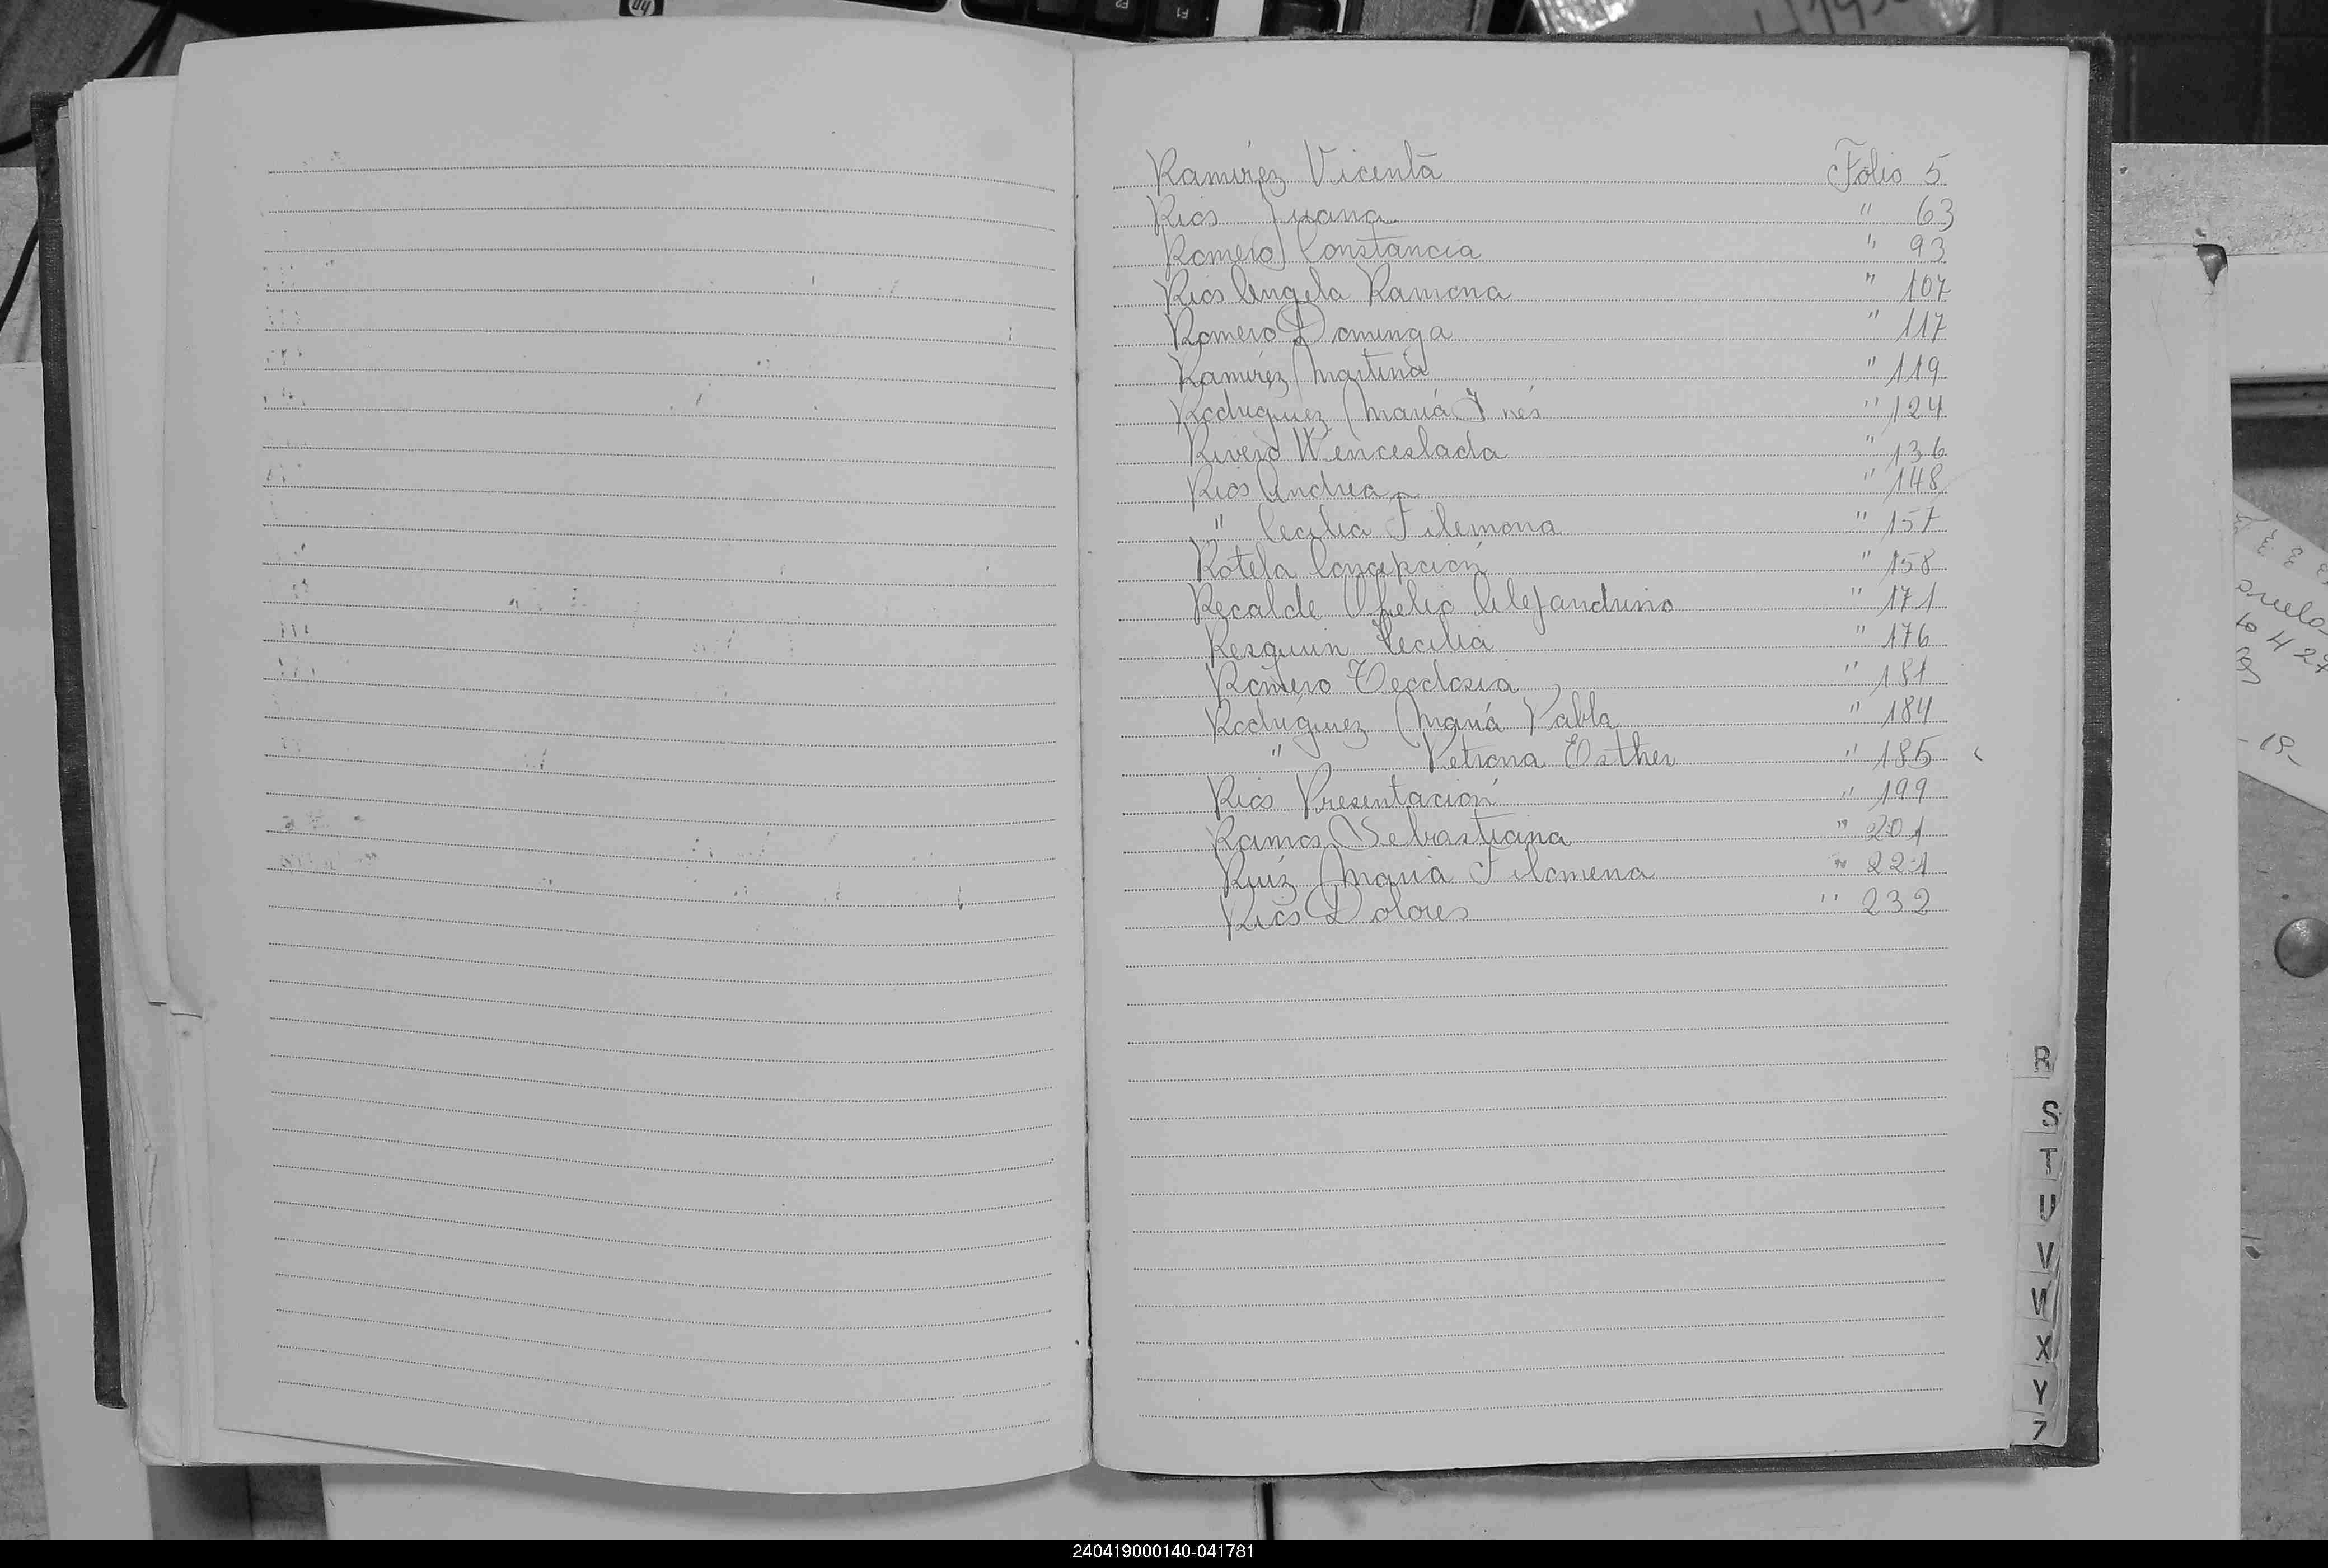 Ramírez Vicenta Folio 5
Rios Juana " 63
Romero Constancia " 93
Rios Angela Ramona " 107
Romero Dominga " 117
Ramírez Martina " 119
Rodriguez María Inés " 124
Rivero Wenceslada " 136
Rios Andrea " 148
" Cecilia Filemona " 157
Rotela Concepción " 158
Recalde Ofelio Alejandrino " 171
Resquin Cecilia " 176
Romero Teodosia " 181
Rodríguez María Pabla " 184
" Petrona Esther " 185
Rios Presentación " 199
Ramos Sebastiana " 201
Ruíz María Filomena " 221
Rios Dolores " 232
R
S
T
U
V
W
X
Y
Z
240419000140-041781